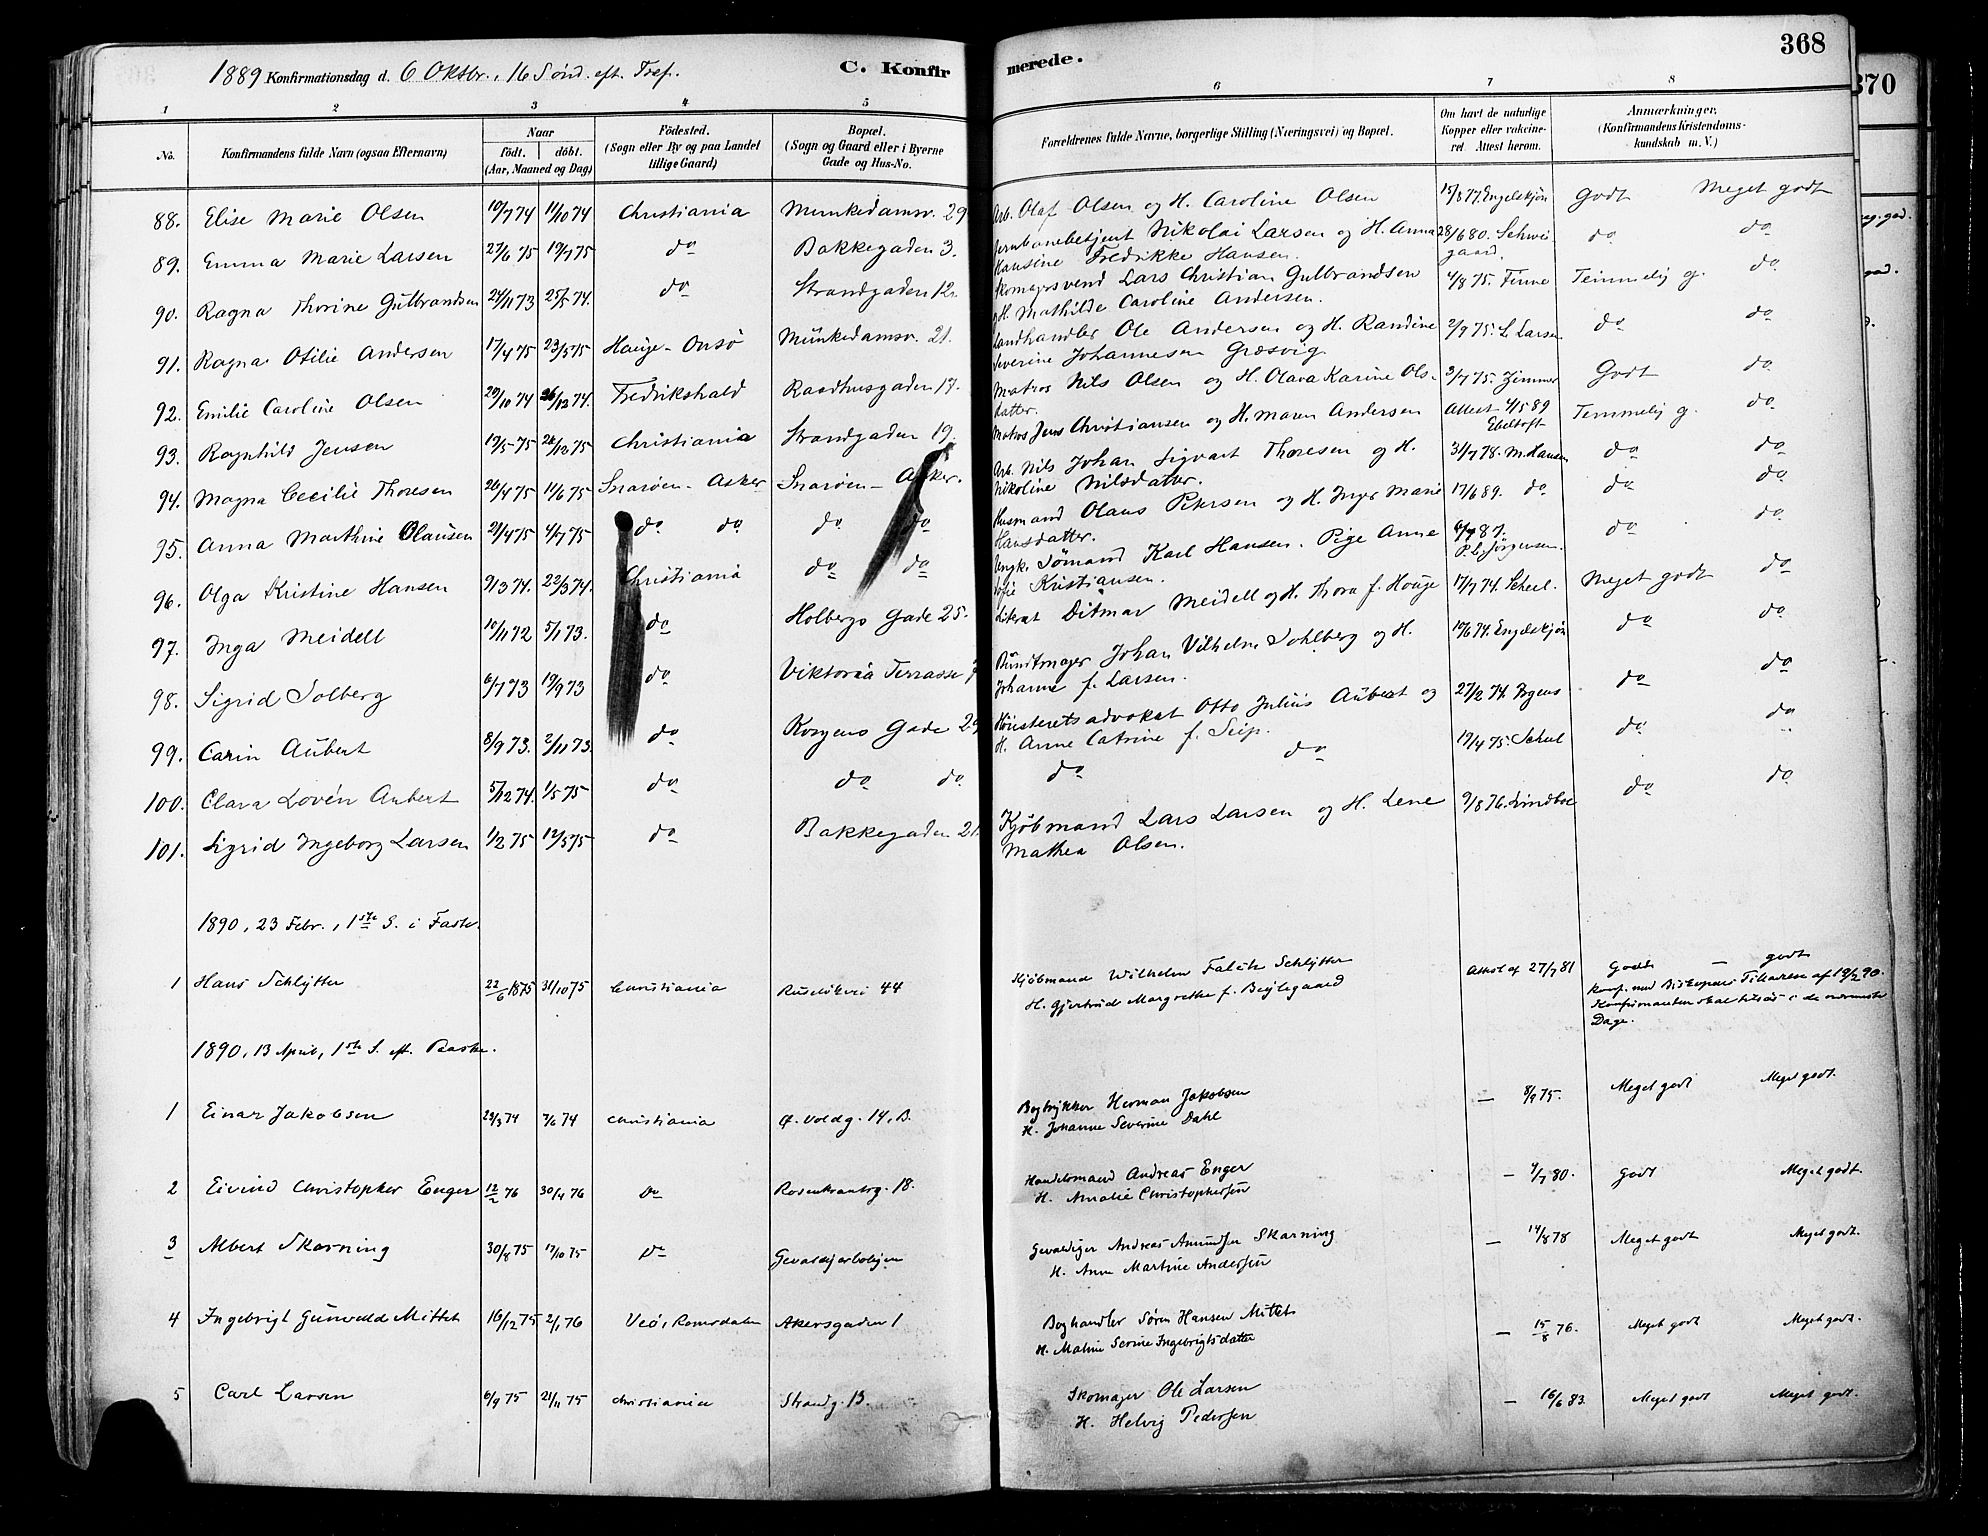 368
370
1889 Konfirmationsdag d. 6 Oktbr., 16 Sönd. eft. Tref.
C. Konfirmerede.
1 2 3 4 5 6 7 8
No.
Konfirmandens fulde Navn (ogsaa Efternavn)
Naar
født. døbt.
(Aar, Maaned og Dag)
Fødested.
(Sogn eller By og paa Landet
tillige Gaard)
Bopæl.
(Sogn og Gaard eller i Byerne
Gade og Hus-No.
Forældrenes fulde Navne, borgerlige Stilling (Næringsvei) og Bopæl.
Om havt de naturlige
Kopper eller vakcine-
ret. Attest herom.
Anmærkninger,
(Konfirmandens Kristendoms-
kundskab m. V.)
88. Elise Marie Olsen 10/7 74 11/10 74 Christiania Munkedamsv. 29 Arb. Olaf Olsen og H. Caroline Olsen 15/8 77. Engelskjön Godt Meget godt
89. Emma Marie Larsen 27/6 75 19/7 75 do Bakkegaden 3. Jernbanebetjent Nikolai Larsen og H. Anna 28/6 80. Schwei- do do
Hansine Fredrikke Hansen. gaard.
90. Ragna Thorine Gulbrandsen 24/11 73 25/5 74. do Strandgaden 12. Skomagersvend Lars Christian Gulbrandsen 4/8 75. Finne Temmelig g. do
og H. Mathilde Caroline Andersen.
91. Ragna Otilie Andersen 17/4 75 23/5 75 Hauge-Onsö Munkedamsv. 21. Landhandler Ole Andersen og H. Randine 2/9 75. L. Larsen do do
Severine Johannesen Græsvig
92. Emilie Caroline Olsen 29/10 74 26/12 74. Fredrikshald Raadhusgaden 17. Matros Nils Olsen og H. Olava Karine Ols- 3/7 75. Zimmer Godt do
datter.
93. Ragnhild Jensen 19/5 75 26/12 75 Christiania Strandgaden 19. Matros Jens Christiansen og H. Maren Andersen Attest 4/5 89 Temmelig g. do
Ebeltoft
94. Magna Cecilie Thoresen 26/4 75 11/6 75 Snaröen-Asker Snaröen-Asker. Arb. Nils Johan Sigvart Thoresen og H. 31/7 78. M. Hansen do do
Nikoline Nilsdatter.
95. Anna Marthine Olausen 21/4 75 4/7 75 do do do do Husmand Olaus Petersen og H. Inger Marie 17/6 89. do do do
Hansdatter.
96. Olga Kristine Hansen 9/3 74. 22/3 74. Christiania do do Ungk. Sömand Karl Hansen. Pige Anne 87. do do
Sofie Kristiansen. P. L. Jörgensen.
97. Inga Meidell 10/11 72 5/1 73. do Holbergs Gade 25. Literat Ditmar Meidell og H. Thora f. Houge 17/7 74. Scheel. Meget godt do
98. Sigrid Solberg 6/7 73 19/9 73 do Viktoria Terrasse 7 Bundtmager Johan Vilhelm Sohlberg og H. 10/6 74. Engelskjön do do
Johanne f. Larsen.
99. Carin Aubert 8/9 73. 2/11 73. do Kongens Gade 29 Höiesteretsadvokat Otto Julius Aubert og 27/2 74. do do
H. Anne Catrine f. Seip.
100. Clara Lovén Aubert 5/12 74. 1/5 75 do do do do do 19/4 75. Scheel do do
101. Sigrid Ingeborg Larsen 1/2 75 12/5 75 do Bakkegaden 21. Kjöbmand Lars Larsen og H. Lene 9/8 76. Lindboe do do
Mathea Olsen.
1890, 23 Febr., 1ste S. i Faste.
1 Hans Schlytter 22/6 1875 31/10 75 Christiania Ruselökvei 44 Kjöbmand Wilhelm Falck Schlytter Attest af 27/7 81 Godt – godt
H. Gjertrud Margrethe f. Bejlegaard konf. med Biskopens Tilladelse af 19/2 90.
Dage.
1890, 13 April, 1ste S. eft. Paaske.
1 Einar Jakobsen 29/3 74 7/6 74 Christiania Ø. Voldg. 14, B. Bogtrykker Herman Jakobsen – 8/9 75. Meget godt Meget godt.
H. Johanne Severine Dahl
2 Eivind Christopher Enger 12/2 76 30/4 76 Do Rosenkrantzg. 18. Handelsmand Andreas Enger – 9/7 80. Godt Meget godt.
H. Amalie Christophersen
3 Albert Skarning 30/8 75 17/10 75 Do Gevaldigerboligen Gevaldiger Andreas Amundsen Skarning – 14/8 78 Meget godt Meget godt.
H. Anne Martine Andersen
4 Ingebrigt Gunvald Mittet 16/12 75 2/1 76 Veö, Romsdalen Akersgaden 1 Boghandler Sören Hansen Mittet – 15/8 76. Meget godt Meget godt.
H. Maline Serine Ingebrigtsdatter
5 Carl Larsen 6/9 75 21/11 75 Christiania Strandg. 13. Skomager Ole Larsen – 16/6 83. Meget godt Meget godt.
H. Helvig Pedersen